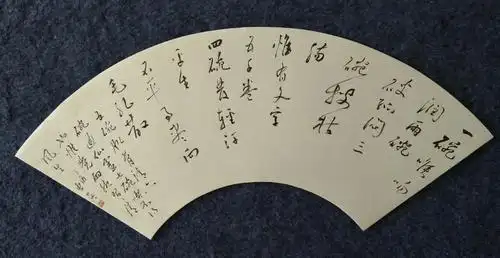 一碗喉吻
潤兩碗
破孤悶三
碗搜枯
腸
惟有文字
五千卷
四碗發輕汗
平生
不平事盡向
毛孔散
五碗肌骨清六
碗通仙靈七碗吃不得
也惟覺兩腋習習清
風生